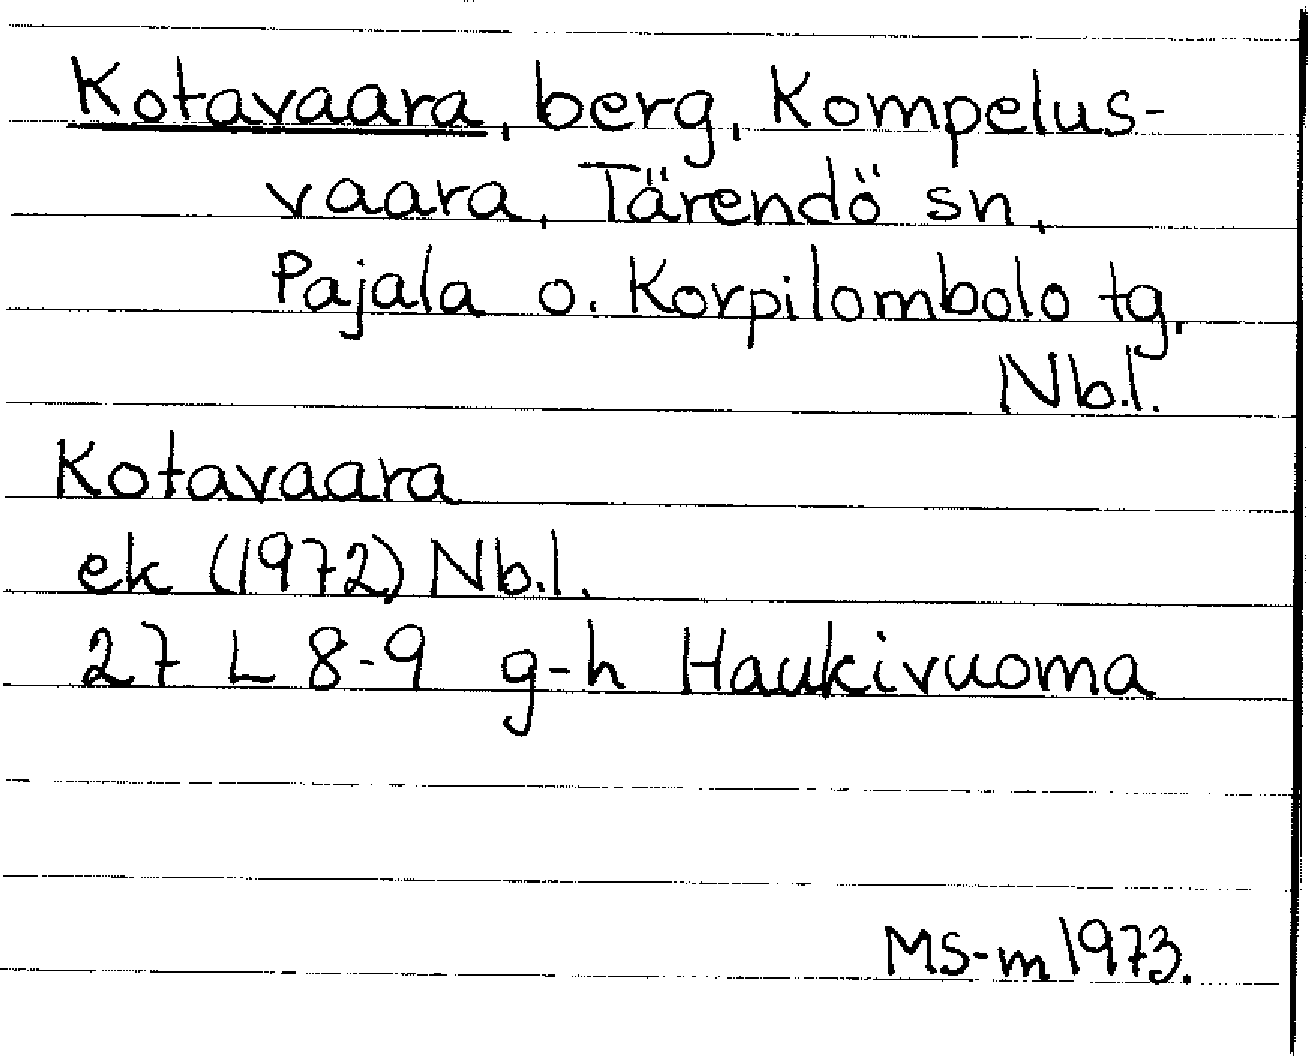 Kotavaara, berg, Kompelus-
vaara, Tärendö sn,
Pajala o. Korpilombolo tg,
Nb.l.
Kotavaara
ek (1972) Nb.l.
27 L 8-9 g-h Haukivuoma
MS-m 1973.